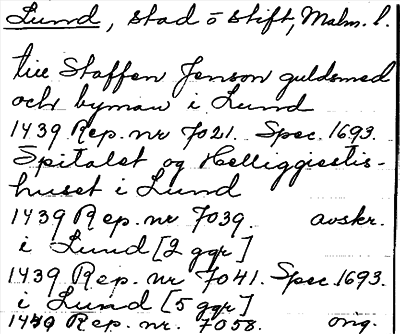 Lund, stad o stift, Malm. l.
till Staffen Jenson guldsmed
och byman i Lund
1439 Rep. nr 7021. Spec. 1693.
Spitalet og Helliggiestis-
huset i Lund
1439 Rep. nr 7039. avskr.
i Lund [2 ggr]
1439 Rep. nr 7041. Spec. 1693.
i Lund [5 ggr]
1439 Rep. nr. 7058. orig.